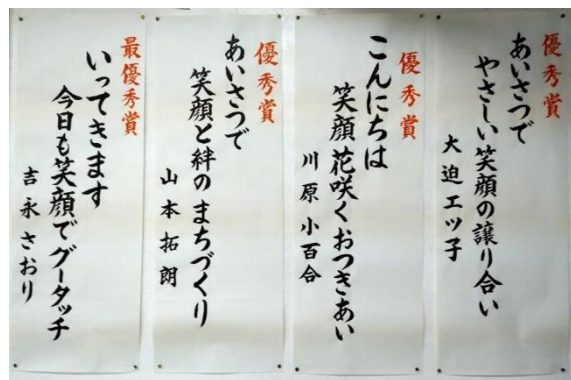 優秀賞
あいさつで
やさしい笑顔の譲り合い
大迫エツ子
優秀賞
こんにちは
笑顔花咲くおつきあい
川原小百合
優秀賞
あいさつで
笑顔と絆のまちづくり
山本拓朗
最優秀賞
いってきます
今日も笑顔でグータッチ
吉永さおり